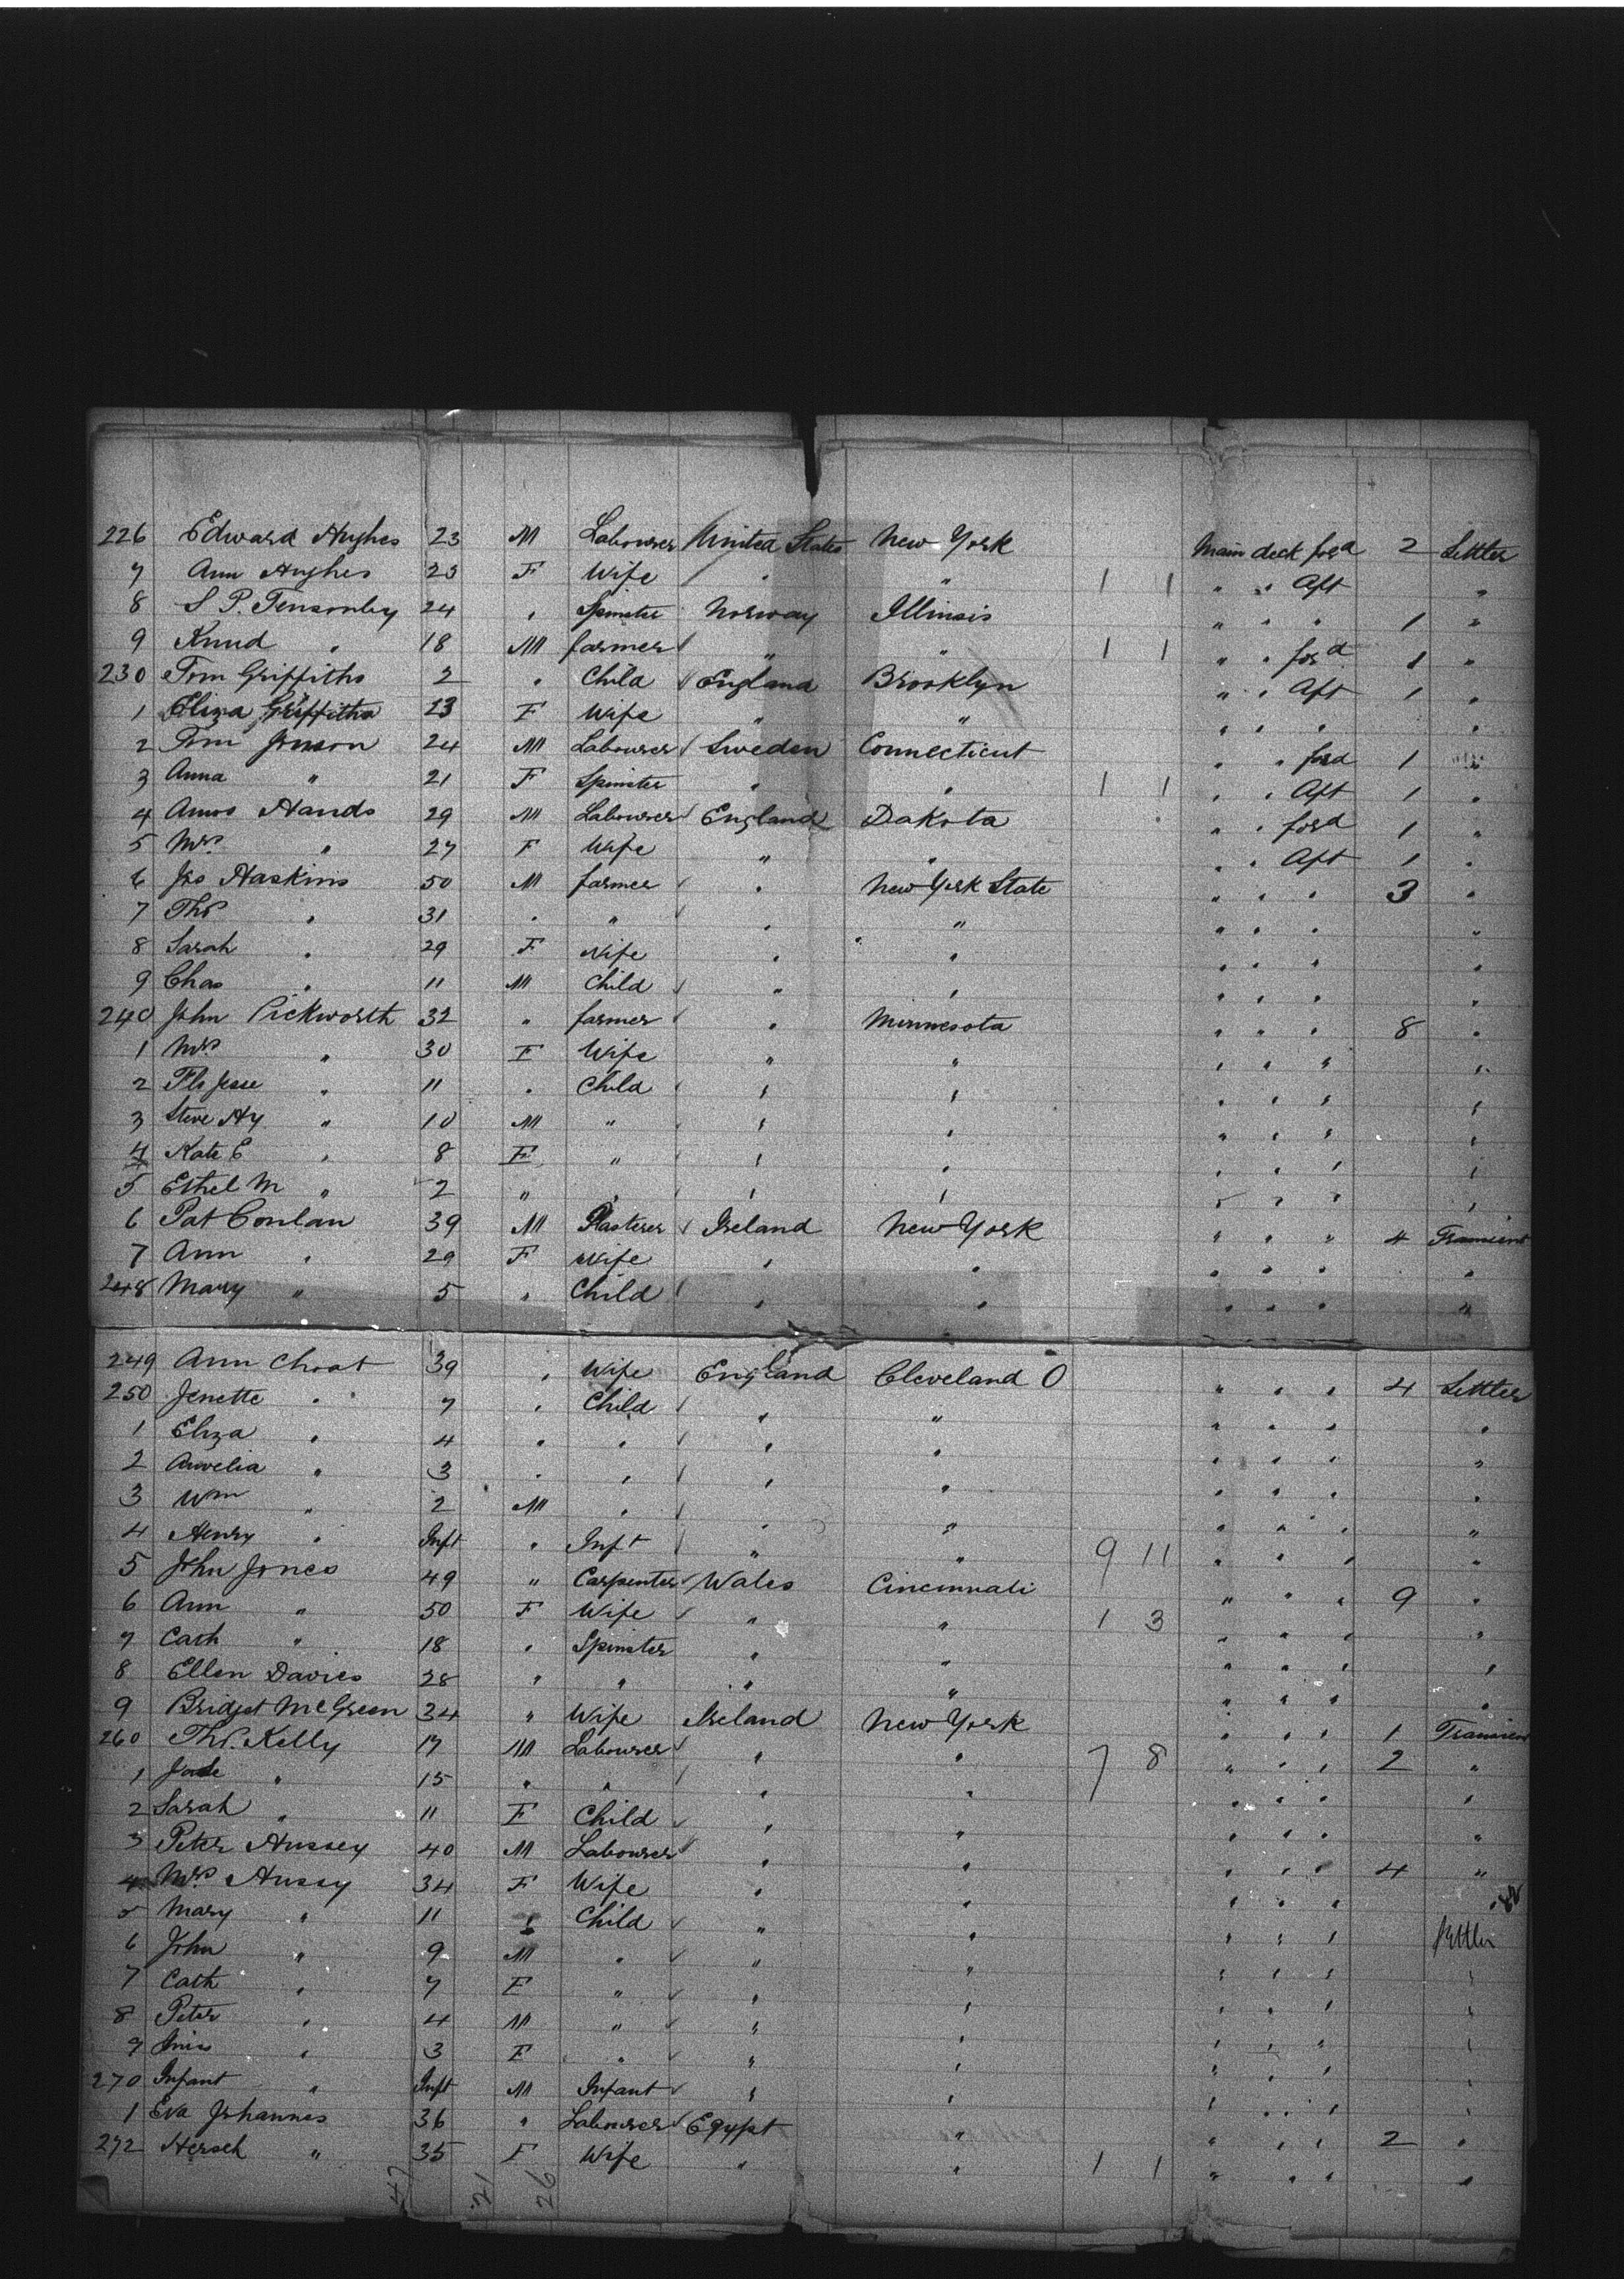 226 Edward Hughes 23 M Labourer United States New York Main deck ford 2 Settler
7 Ann Hughes 23 F Wife " " 1 1 " " Aft "
8 S P. 24 " Spinster Norway Illinois " " " 1 "
9 Knud " 18 M farmer " " 1 1 " " ford 1 "
230 Tom Griffiths 2 " Child England Brooklyn " " Aft 1 "
1 Eliza Griffiths 23 F Wife " " " " " "
2 Tom Jonson 24 M Labourer Sweden Connecticut " " ford 1 "
3 Anna " 21 F Spinster " " 1 1 " " Aft 1 "
4 Amos Hands 29 M Labourer England Dakota " " ford 1 "
5 Mrs " 27 F Wife " " " " Aft 1 "
6 Jno Haskins 50 M farmer " New York State " " " 3 "
7 Thos " 31 " " " " " " " "
8 Sarah " 29 F Wife " " " " " "
9 Chas " 11 M Child " " " " " "
240 John Pickworth 32 " farmer " Minnesota " " " 8 "
1 Mrs " 30 F Wife " " " " " "
2 Jesse " 11 " Child " " " " " "
3 Steve Hy " 10 M " " " " " " "
4 Kate E " 8 F " " " " " " "
5 Ethel M " 2 " " " " " " " "
6 Pat Conlan 39 M Plasterer Ireland New York " " " 4 Transient
7 Ann " 29 F Wife " " " " " "
248 Mary " 5 " Child " " " " " "
249 Ann Choat 39 " Wife England Cleveland O " " " 4 Settler
250 Jenette " 7 " Child " " " " " "
1 Eliza " 4 " " " " " " " "
2 Amelia " 3 " " " " " " " "
3 Wm " 2 M " " " " " " "
4 Henry " Inft " Inft " " 9 11 " " " "
5 John Jones 49 " Carpenter Wales Cincinnati " " " 9 "
6 Ann " 50 F Wife " " 1 3 " " " "
7 Cath " 18 " Spinster " " " " " "
8 Ellen Davies 28 " " " " " " " "
9 Bridget McGreen 34 " Wife Ireland New York " " " 1 Transien
260 Thos. Kelly 17 M Labourer " " 7 8 " " " 2 "
1 " 15 " " " " " " " "
2 Sarah " 11 F Child " " " " " "
3 Peter Hussey 40 M Labourer " " " " " 4 "
4 Mrs Hussy 34 F Wife " " " " " "
5 Mary " 11 " Child " " " " " Settler
6 John " 9 M " " " " " " "
7 Cath " 7 F " " " " " " "
8 Peter " 4 M " " " " " " "
9 " 3 F " " " " " " "
270 Infant " Inft M Infant " " " " " "
1 Eva Johannes 36 " Labourer Egypt " " " " 2 "
272 Hersch " 35 F Wife " " 1 1 " " " "
47 21 26